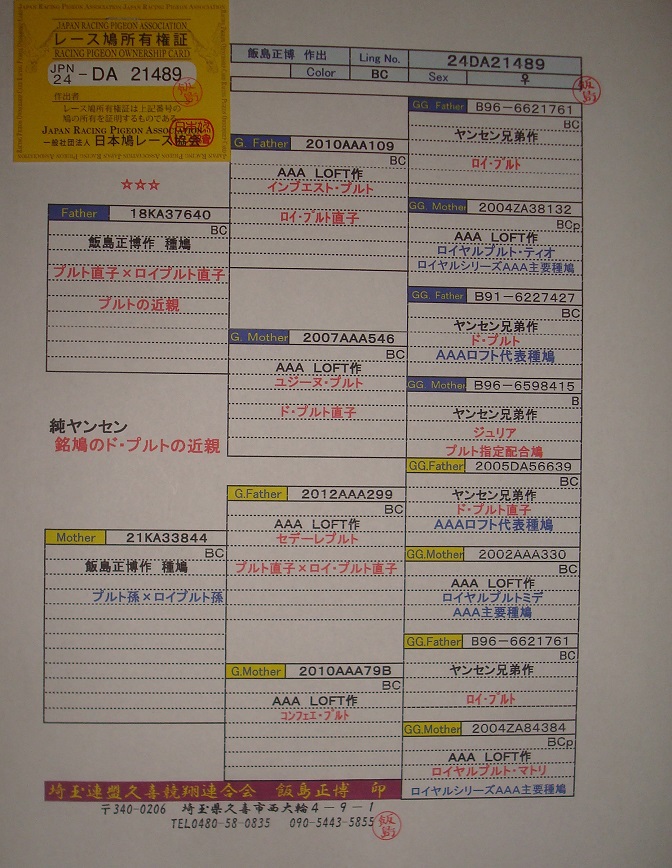 JAPAN RACING PIGEON ASSOCIATION
レース鳩所有権証
RACING PIGEON OWNERSHIP CARD
JPN 24 -DA 21489
作出者
レース鳩所有権証は上記番号の
鳩の所有を証明するものである
JAPAN RACING PIGEON ASSOCIATION
一般社団法人 日本鳩レース協会
飯島正博 作出 Ling No. 24DA21489
Color BC Sex ♀
☆☆☆
Father 18KA37640
BC
飯島正博作 種鳩
プルト直子×ロイプルト直子
プルトの近親
純ヤンセン
銘鳩のド・プルトの近親
Mother 21KA33844
BC
飯島正博作 種鳩
プルト孫×ロイプルト孫
G. Father 2010AAA109
BC
AAA LOFT作
インブエスト・プルト
ロイ・プルト直子
G. Mother 2007AAA546
BC
AAA LOFT作
ユジーヌ・プルト
ド・プルト直子
G.Father 2012AAA299
BC
AAA LOFT作
セデーレプルト
プルト直子×ロイ・プルト直子
G.Mother 2010AAA79B
BC
AAA LOFT作
コンフェエ・プルト
GG. Father B96-6621761
BC
ヤンセン兄弟作
ロイ・プルト
GG. Mother 2004ZA38132
BCp
AAA LOFT作
ロイヤルプルト・ティオ
ロイヤルシリーズAAA主要種鳩
GG. Father B91-6227427
BC
ヤンセン兄弟作
ド・プルト
AAAロフト代表種鳩
GG. Mother B96-6598415
B
ヤンセン兄弟作
ジュリア
プルト指定配合鳩
GG.Father 2005DA56639
BC
ヤンセン兄弟作
ド・プルト直子
AAAロフト代表種鳩
GG.Mother 2002AAA330
BC
AAA LOFT作
ロイヤルプルトミデ
AAA主要種鳩
GG.Father B96-6621761
BC
ヤンセン兄弟作
ロイ・プルト
GG.Mother 2004ZA84384
BCp
AAA LOFT作
ロイヤルプルト・マトリ
ロイヤルシリーズAAA主要種鳩
埼玉連盟久喜競翔連合会 飯島正博 印
〒340-0206 埼玉県久喜市西大輪4-9-1
TEL0480-58-0835 090-5443-5855